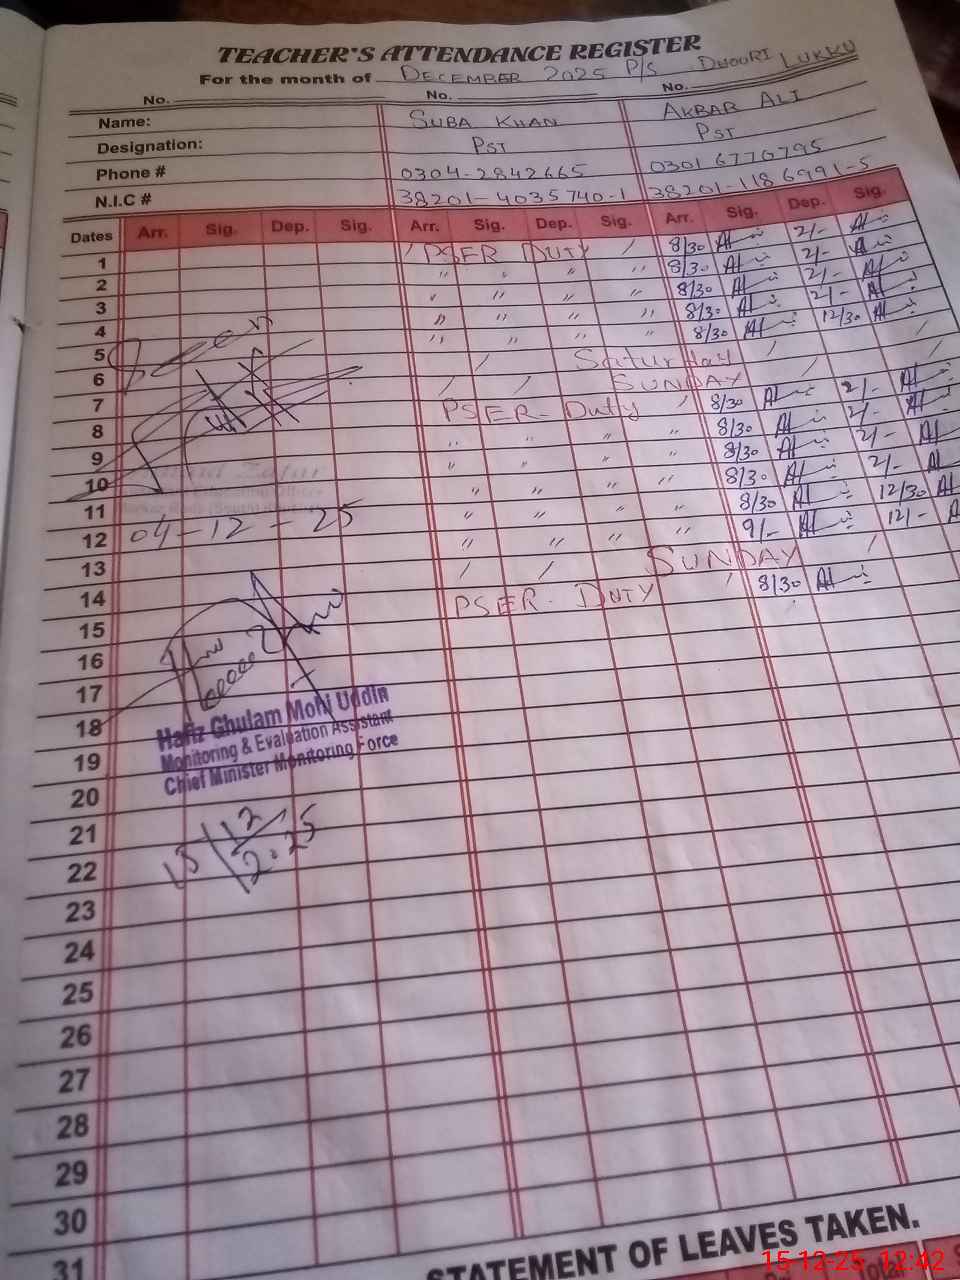 TEACHER'S ATTENDANCE REGISTER
For the month of DECEMBER 2025 P/S DHOORI LUKKU
No. No. No.
Name: SUBA KHAN AKBAR ALI
Designation: PST PST
Phone # 0304-2842665 0301 6770795
N.I.C # 38201-4035740-1 38201-1186991-5
Dates Arr. Sig. Dep. Sig. Arr. Sig. Dep. Sig. Arr. Sig. Dep. Sig.
1 PSER DUTY 8/30 2/-
2 " " " " 8/30 2/-
3 " " " " 8/30 2/-
4 " " " " 8/30 2/-
5 " " " " 8/30 12/30
6 Saturday
7 SUNDAY
8 PSER-Duty 8/30 2/-
9 " " " " 8/30 2/-
10 " " " " 8/30 2/-
11 " " " " 8/30 2/-
12 " " " " 8/30 12/30
13 " " " " 9/- 12/-
14 SUNDAY
15 PSER-DUTY 8/30
Seen
04-12-25
16
17
18
Hafiz Ghulam Mohi Uddin
Monitoring & Evaluation Assistant
Chief Minister Monitoring Force
19
20
21
15/12/2025
22
23
24
25
26
27
28
29
30
31
STATEMENT OF LEAVES TAKEN.
15-12-25 12:42